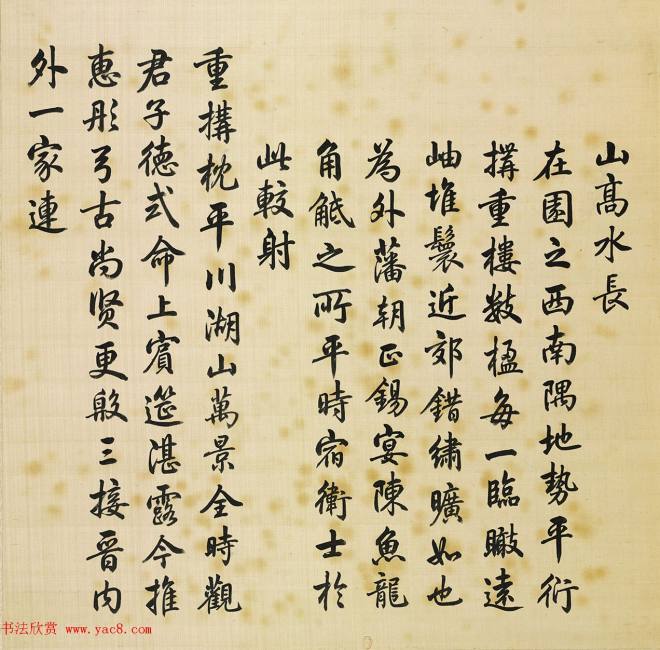 山高水長
在園之西南隅地勢平衍
搆重樓數楹每一臨瞰遠
岫堆鬟近郊錯繡曠如也
為外藩朝正錫宴陳魚龍
角觝之所平時宿衛士於
此較射
重搆枕平川湖山萬景全時觀
君子德式命上賓筵湛露今推
惠彤弓古尚贤更殷三接晉内
外一家連
书法欣赏 www.yac8.com